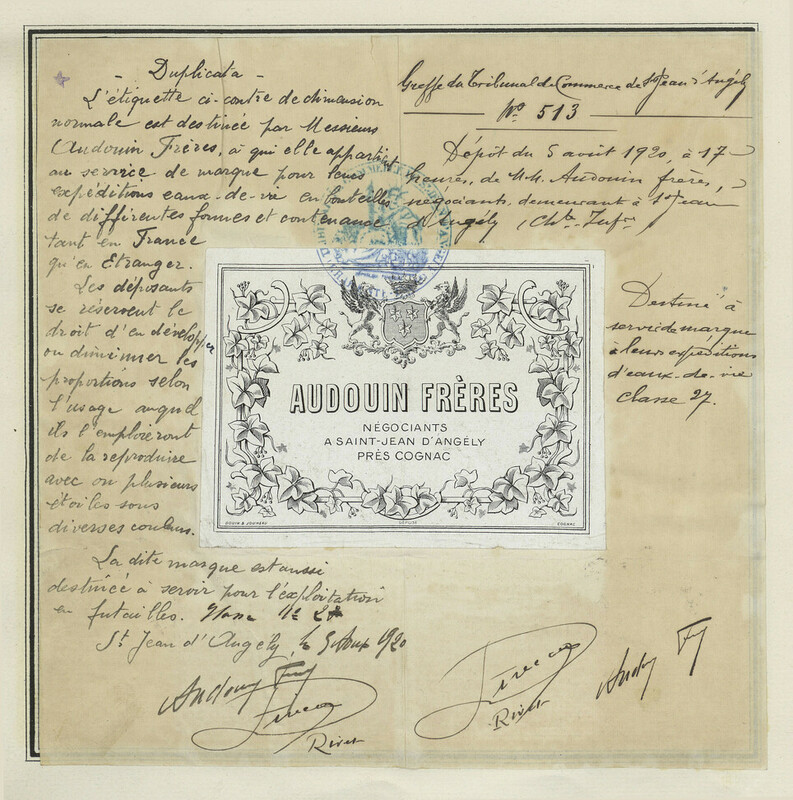 - Duplicata -
L'étiquette ci-contre de dimension
normale est destinée par Messieurs
Audouin Frères, à qui elle appartient
au service de marque pour leurs
expéditions eaux-de-vie en bouteilles
de différentes formes et contenance
tant en France
qu'en Etranger.
Les déposants
se réservent le
droit d'en développer
ou diminuer les
proportions selon
l'usage auquel
ils l'emploieront
de la reproduire
avec ou plusieurs
étoiles sous
diverses couleurs.
La dite marque est aussi
destinée à servir pour l'exploitation
en futailles.
St Jean d'Angély, le 5 Aout 1920
Rivet
Greffe du Tribunal de Commerce de St Jean d'Angély
No 513
Dépôt du 5 août 1920, à 17
heures, de MM. Audouin frères,
négociants, demeurant à St Jean
d'Angély (Chte Infre)
Destiné à
servir de marque
à leurs expéditions
d'eaux-de-vie
Classe 27.
AUDOUIN FRÈRES
NÉGOCIANTS
A SAINT-JEAN D'ANGÉLY
PRÈS COGNAC
DÉPOSÉ
COGNAC
Rivet